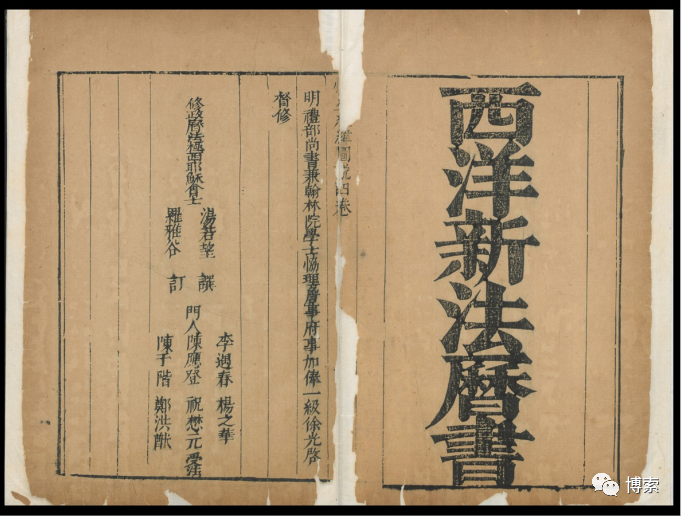 西洋新法曆書
圖說四卷
明禮部尚書兼翰林院學士協理詹事府事加俸一級徐光啓
督修
修政曆法極西耶穌會士
湯若望 譔
羅雅谷 訂
李遇春 楊之華
門人陳應登 祝懋元 受法
陳于階 鄭洪猷
博索